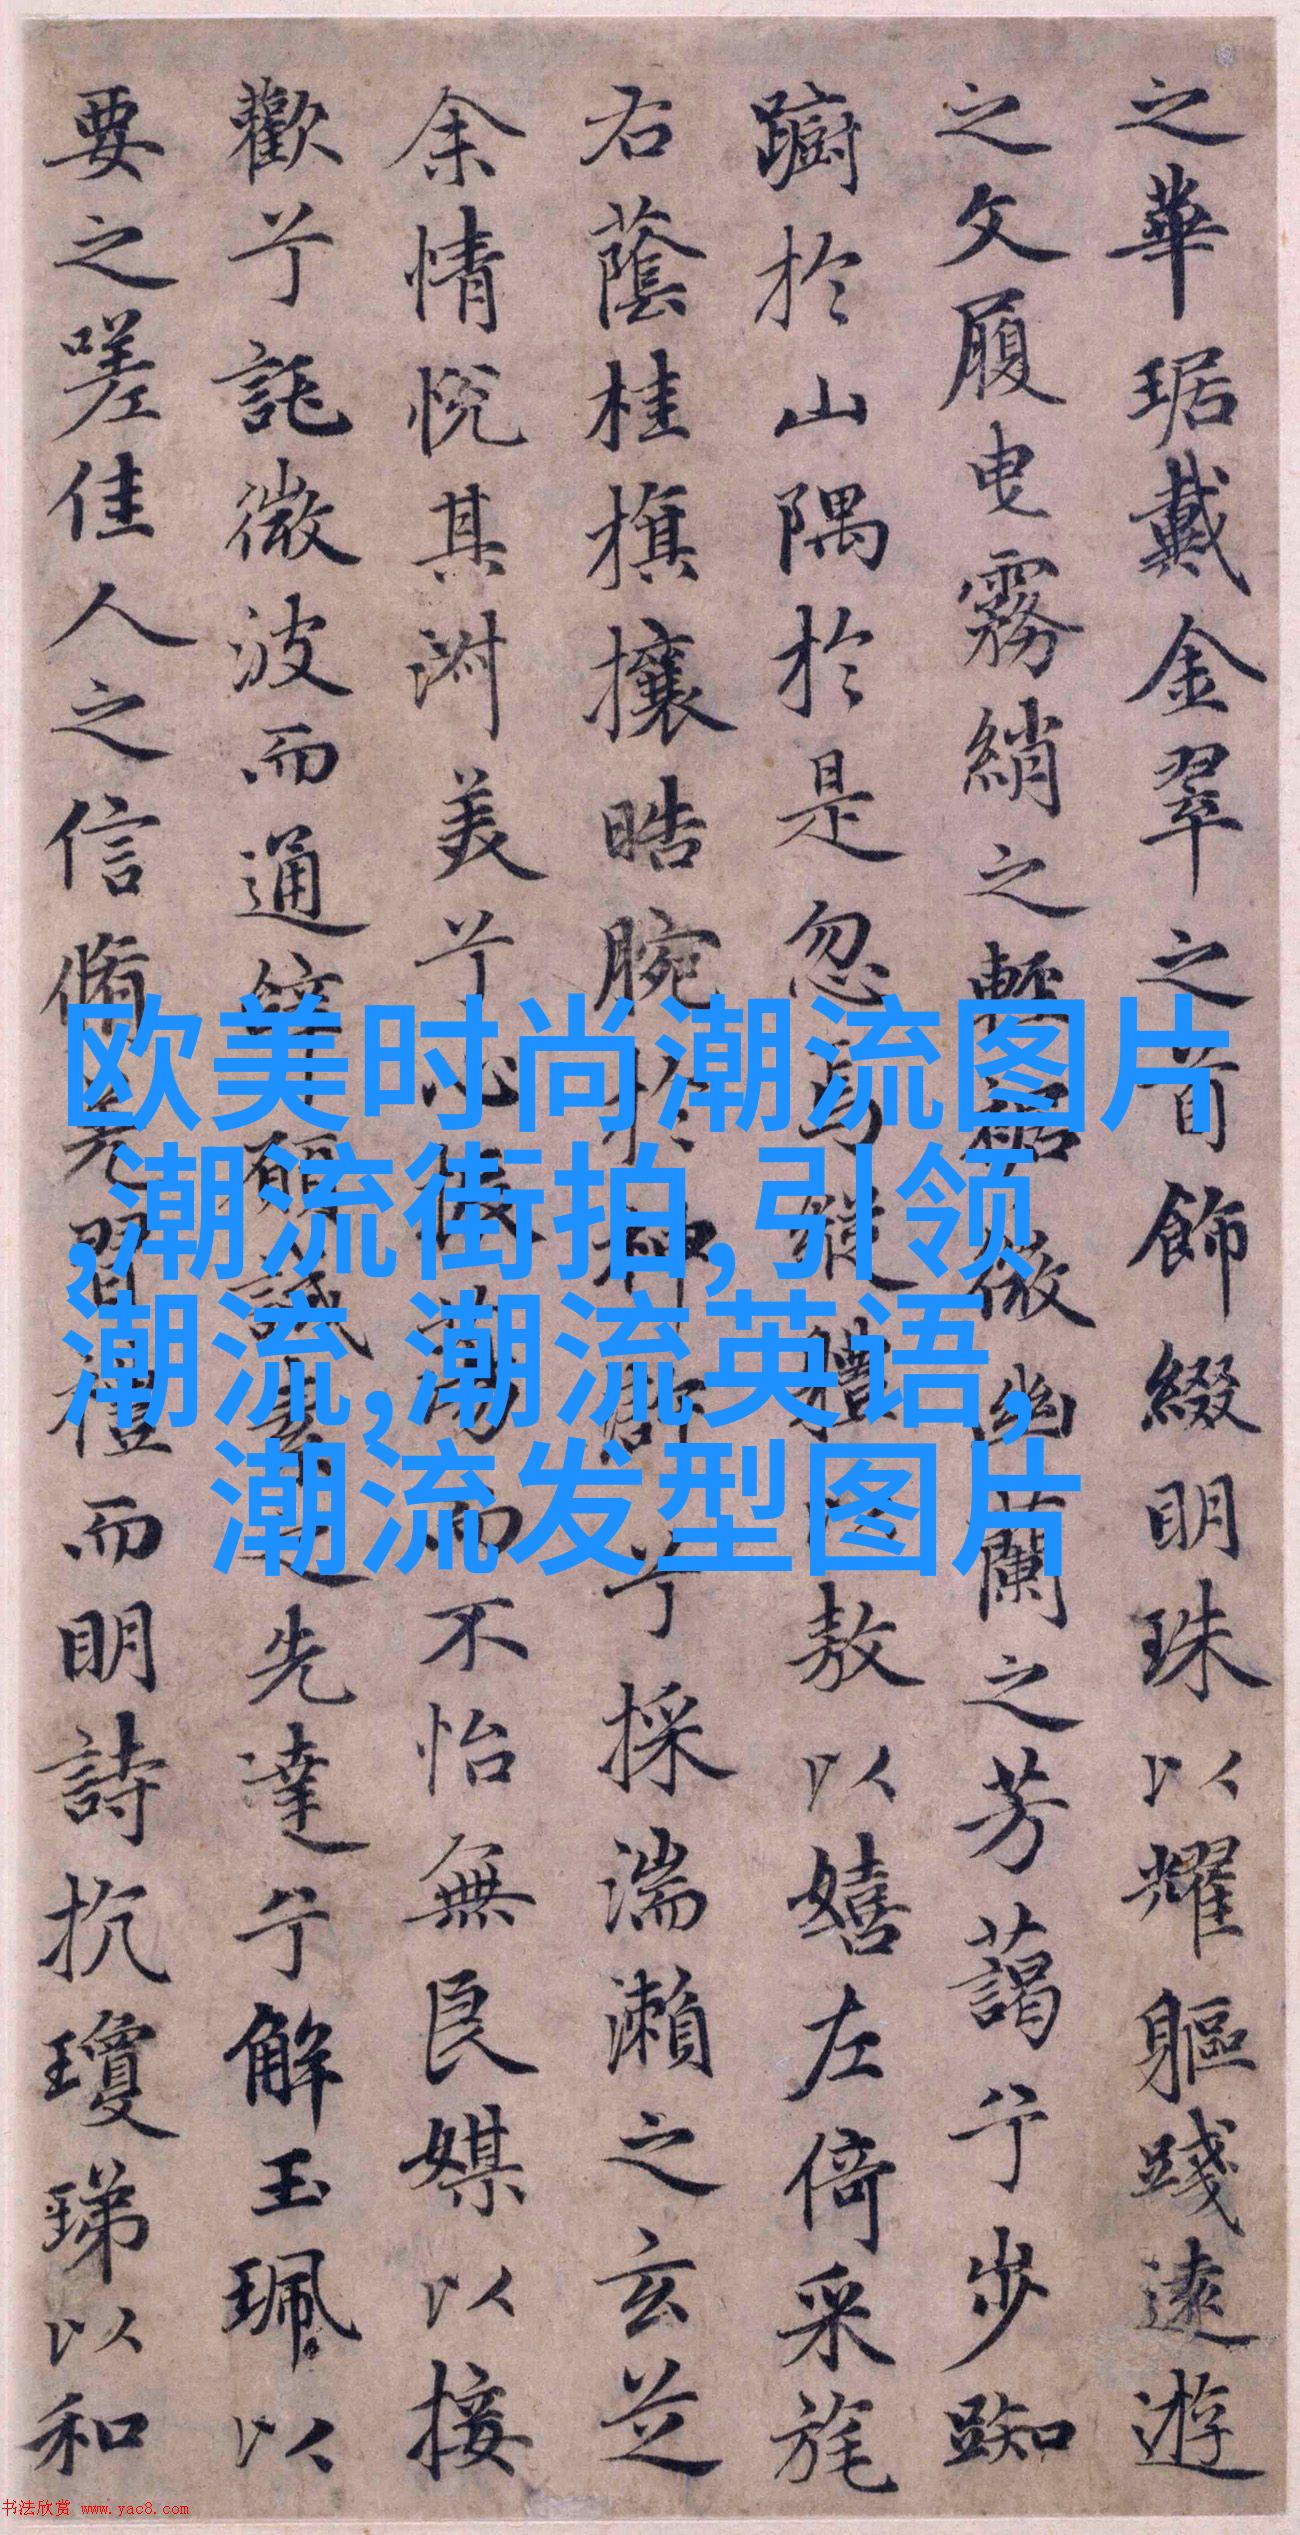 之華琚戴金翠之首飾綴明珠以耀軀踐遠遊
之文履曳霧綃之輕裾微幽蘭之芳藹兮步踟
蹰於山隅於是忽焉縱體以敖以嬉左倚采旄
右蔭桂旗攘皓腕於神滸兮採湍瀨之玄芝
余情悅其淑美兮心振蕩而不怡無良媒以接
歡兮託微波而通辭願誠素之先達兮解玉珮以
要之嗟佳人之信脩羌習禮而明詩抗瓊珶以和
欧美时尚潮流图片
,潮流街拍,引领
潮流,潮流英语,
潮流发型图片
书法欣赏 www.yac8.com